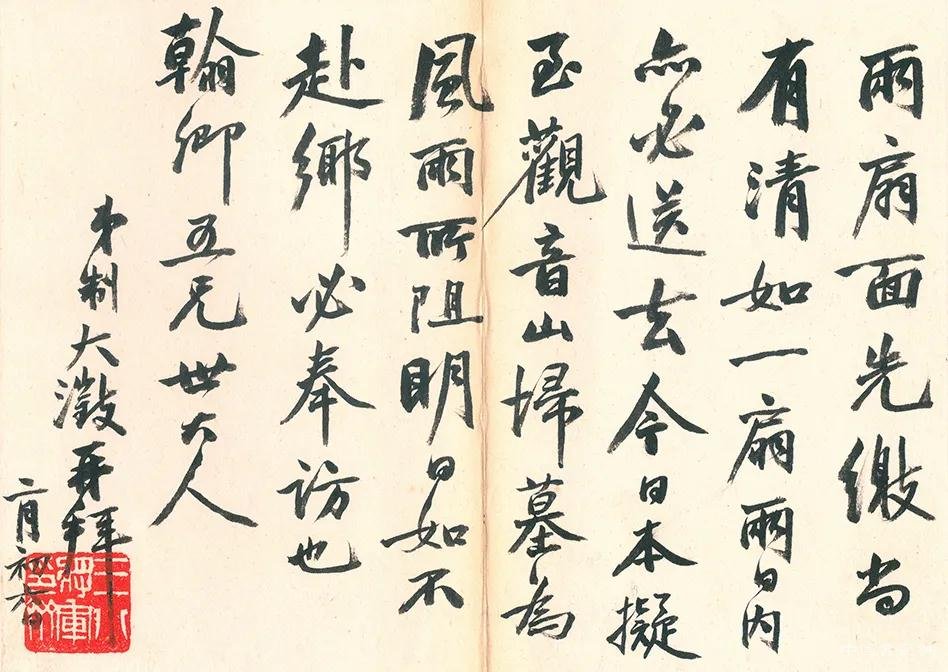 兩扇面先繳尚
有清如一扇兩日內
亦必送去今日本擬
至觀音山埽墓為
風雨所阻明日如不
赴鄉必奉訪也
翰卿五兄世大人
弟制大澂再拜
二月初六日